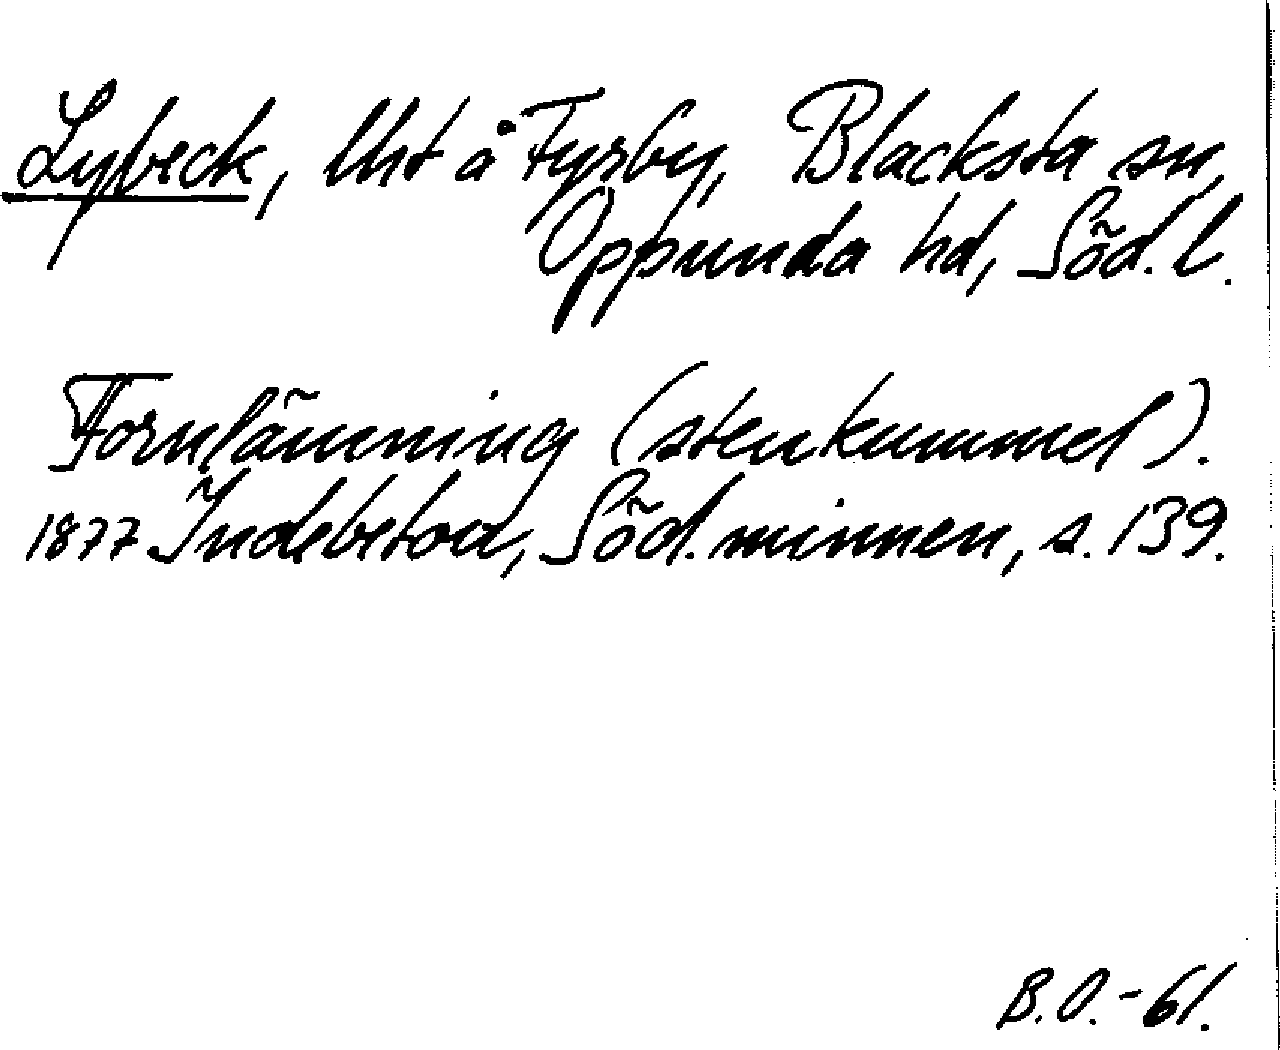 Lybeck, lht å Fyrby, Blacksta sn,
Oppunda hd, Söd. l.
Fornlämning (stenkummel).
1877 Indebetou, Söd. minnen, s. 139.
B.O. - 61.